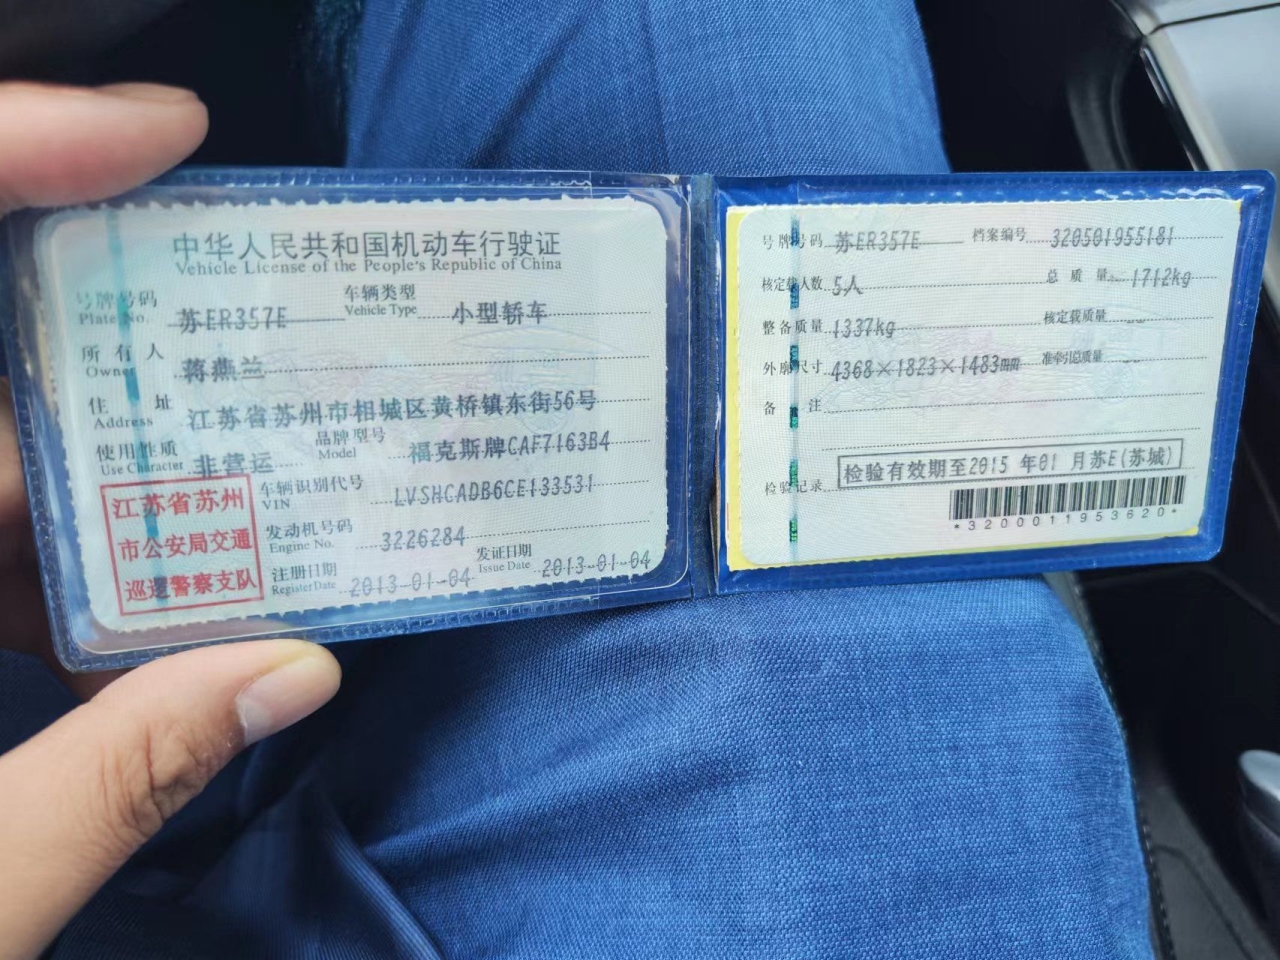 中华人民共和国机动车行驶证
Vehicle License of the People's Republic of China
号牌号码 苏ER357E 车辆类型 小型轿车
Plate No. Vehicle Type
所有人 蒋燕兰
Owner
住址 江苏省苏州市相城区黄桥镇东街56号
Address
使用性质 非营运 品牌型号 福克斯牌CAF7163B4
Use Character Model
车辆识别代号 LVSHCADB6CE133531
VIN
发动机号码 3226284
Engine No.
注册日期 2013-01-04 发证日期 2013-01-04
Register Date Issue Date
江苏省苏州
市公安局交通
巡逻警察支队
号牌号码 苏ER357E 档案编号 320501955181
核定载人数 5人 总质量 1712kg
整备质量 1337kg 核定载质量
外廓尺寸 4368×1823×1483mm 准牵引总质量
备注
检验记录 检验有效期至2015年01月苏E(苏城)
*3200011953620*